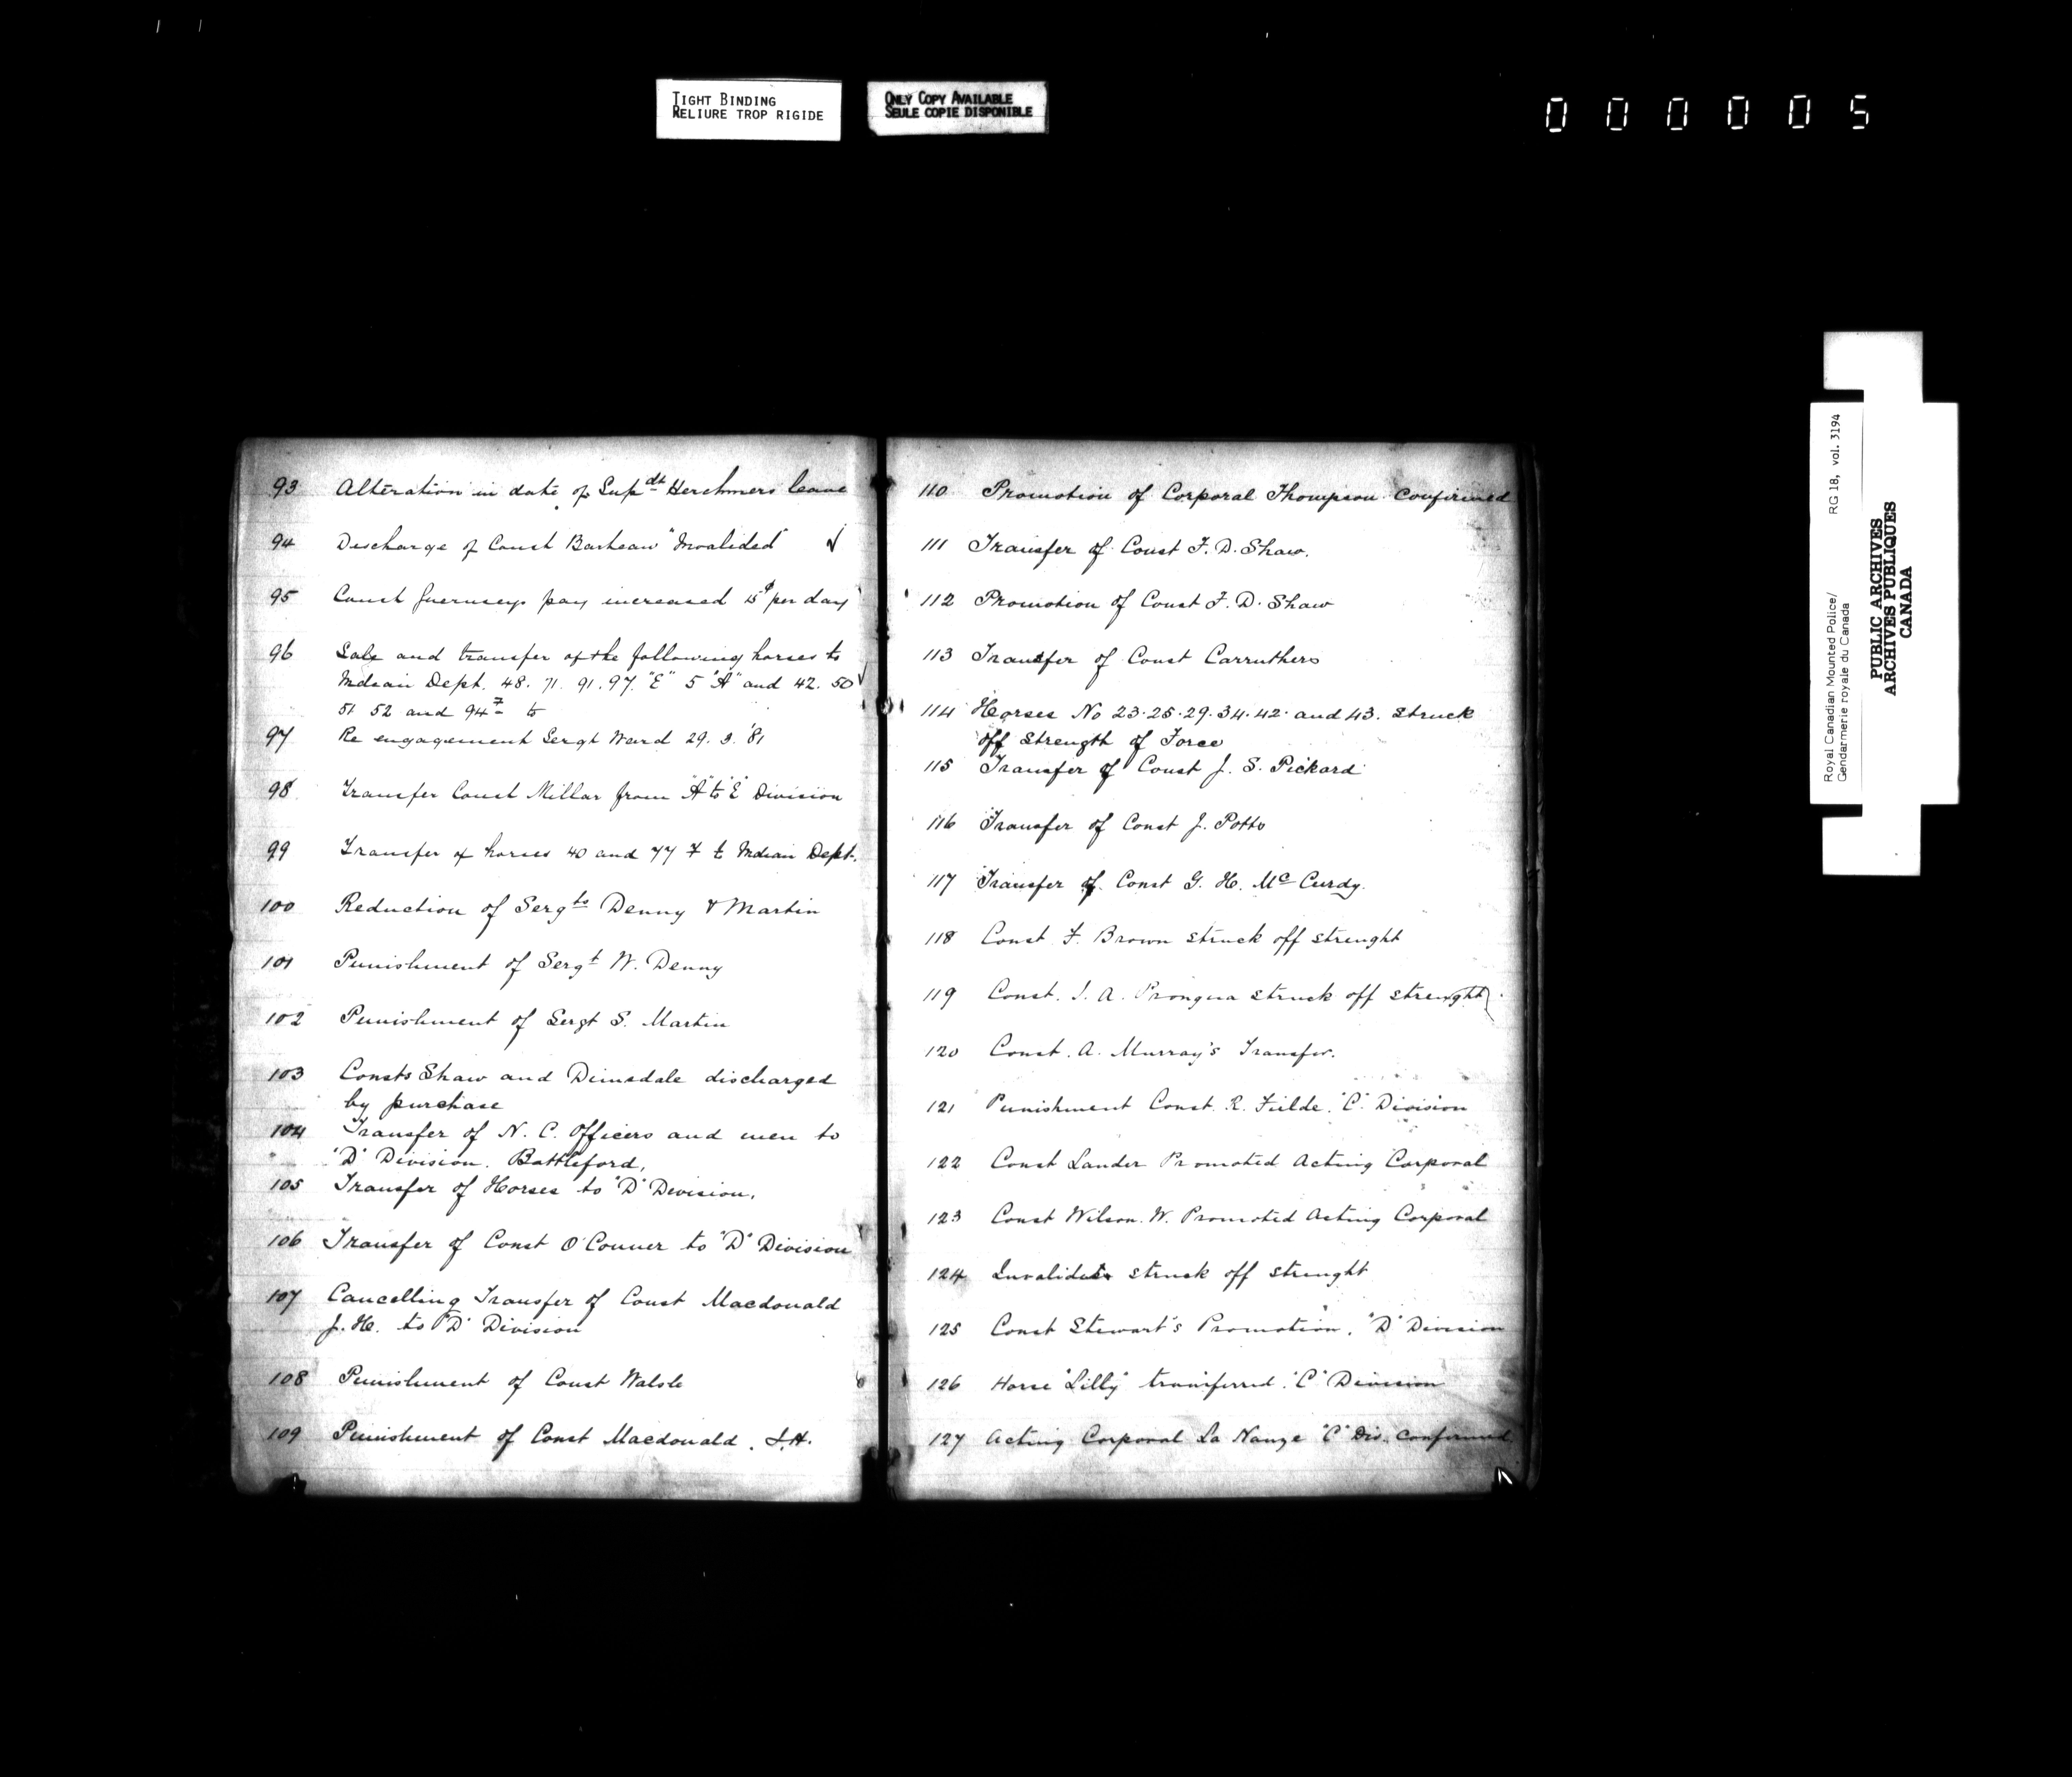 TIGHT BINDING
RELIURE TROP RIGIDE
ONLY COPY AVAILABLE
SEULE COPIE DISPONIBLE
000005
93 Alteration in date of Supdt Herchmers leave
94 Discharge of Const "Invalided"
95 Const Guernseys pay increased 15¢ per day
96 Sale and transfer of the following horses to
Indian Dept. 48. 71. 91. 97. "E" 5 "A" and 42. 50
51 52 and 94 F to
97 Re engagement Sergt Ward 29. 3. '81
98 Transfer Const Millar from "A" to "E" Division
99 Transfer of horses 40 and 77 F to Indian Dept.
100 Reduction of Sergts Denny & Martin
101 Punishment of Sergt W. Denny
102 Punishment of Sergt S. Martin
103 Consts Shaw and Dimsdale discharged
by purchase
104 Transfer of N. C. Officers and men to
"D" Division. Battleford,
105 Transfer of Horses to "D" Division,
106 Transfer of Const O'Conner to "D" Division
107 Cancelling Transfer of Const Macdonald
J. H. to "D" Division
108 Punishment of Const Walsh
109 Punishment of Const Macdonald. J.H.
110 Promotion of Corporal Thompson confirmed
111 Transfer of Const F. D. Shaw.
112 Promotion of Const F. D. Shaw
113 Transfer of Const Carruthers
114 Horses No 23. 25. 29. 34. 42. and 43. struck
off Strength of Force
115 Transfer of Const J. S. Pickard
116 Transfer of Const J. Potts
117 Transfer of Const G. H. McCurdy.
118 Const F. Brown struck off strenght
119 Const. J. A. Pronqua struck off strenght.
120 Const. A. Murray's Transfer.
121 Punishment Const. R. Fielde. "C" Division
122 Const Lander Promoted Acting Corporal
123 Const Wilson. W. Promoted Acting Corporal
124 struck off strenght
125 Const Stewart's Promotion. "D" Division
126 Horse "Lilly" transferred. "C" Division
127 Acting Corporal La Nauze "C" Div. confirmed
Royal Canadian Mounted Police/
Gendarmerie royale du Canada
RG 18, vol. 3194
PUBLIC ARCHIVES
ARCHIVES PUBLIQUES
CANADA